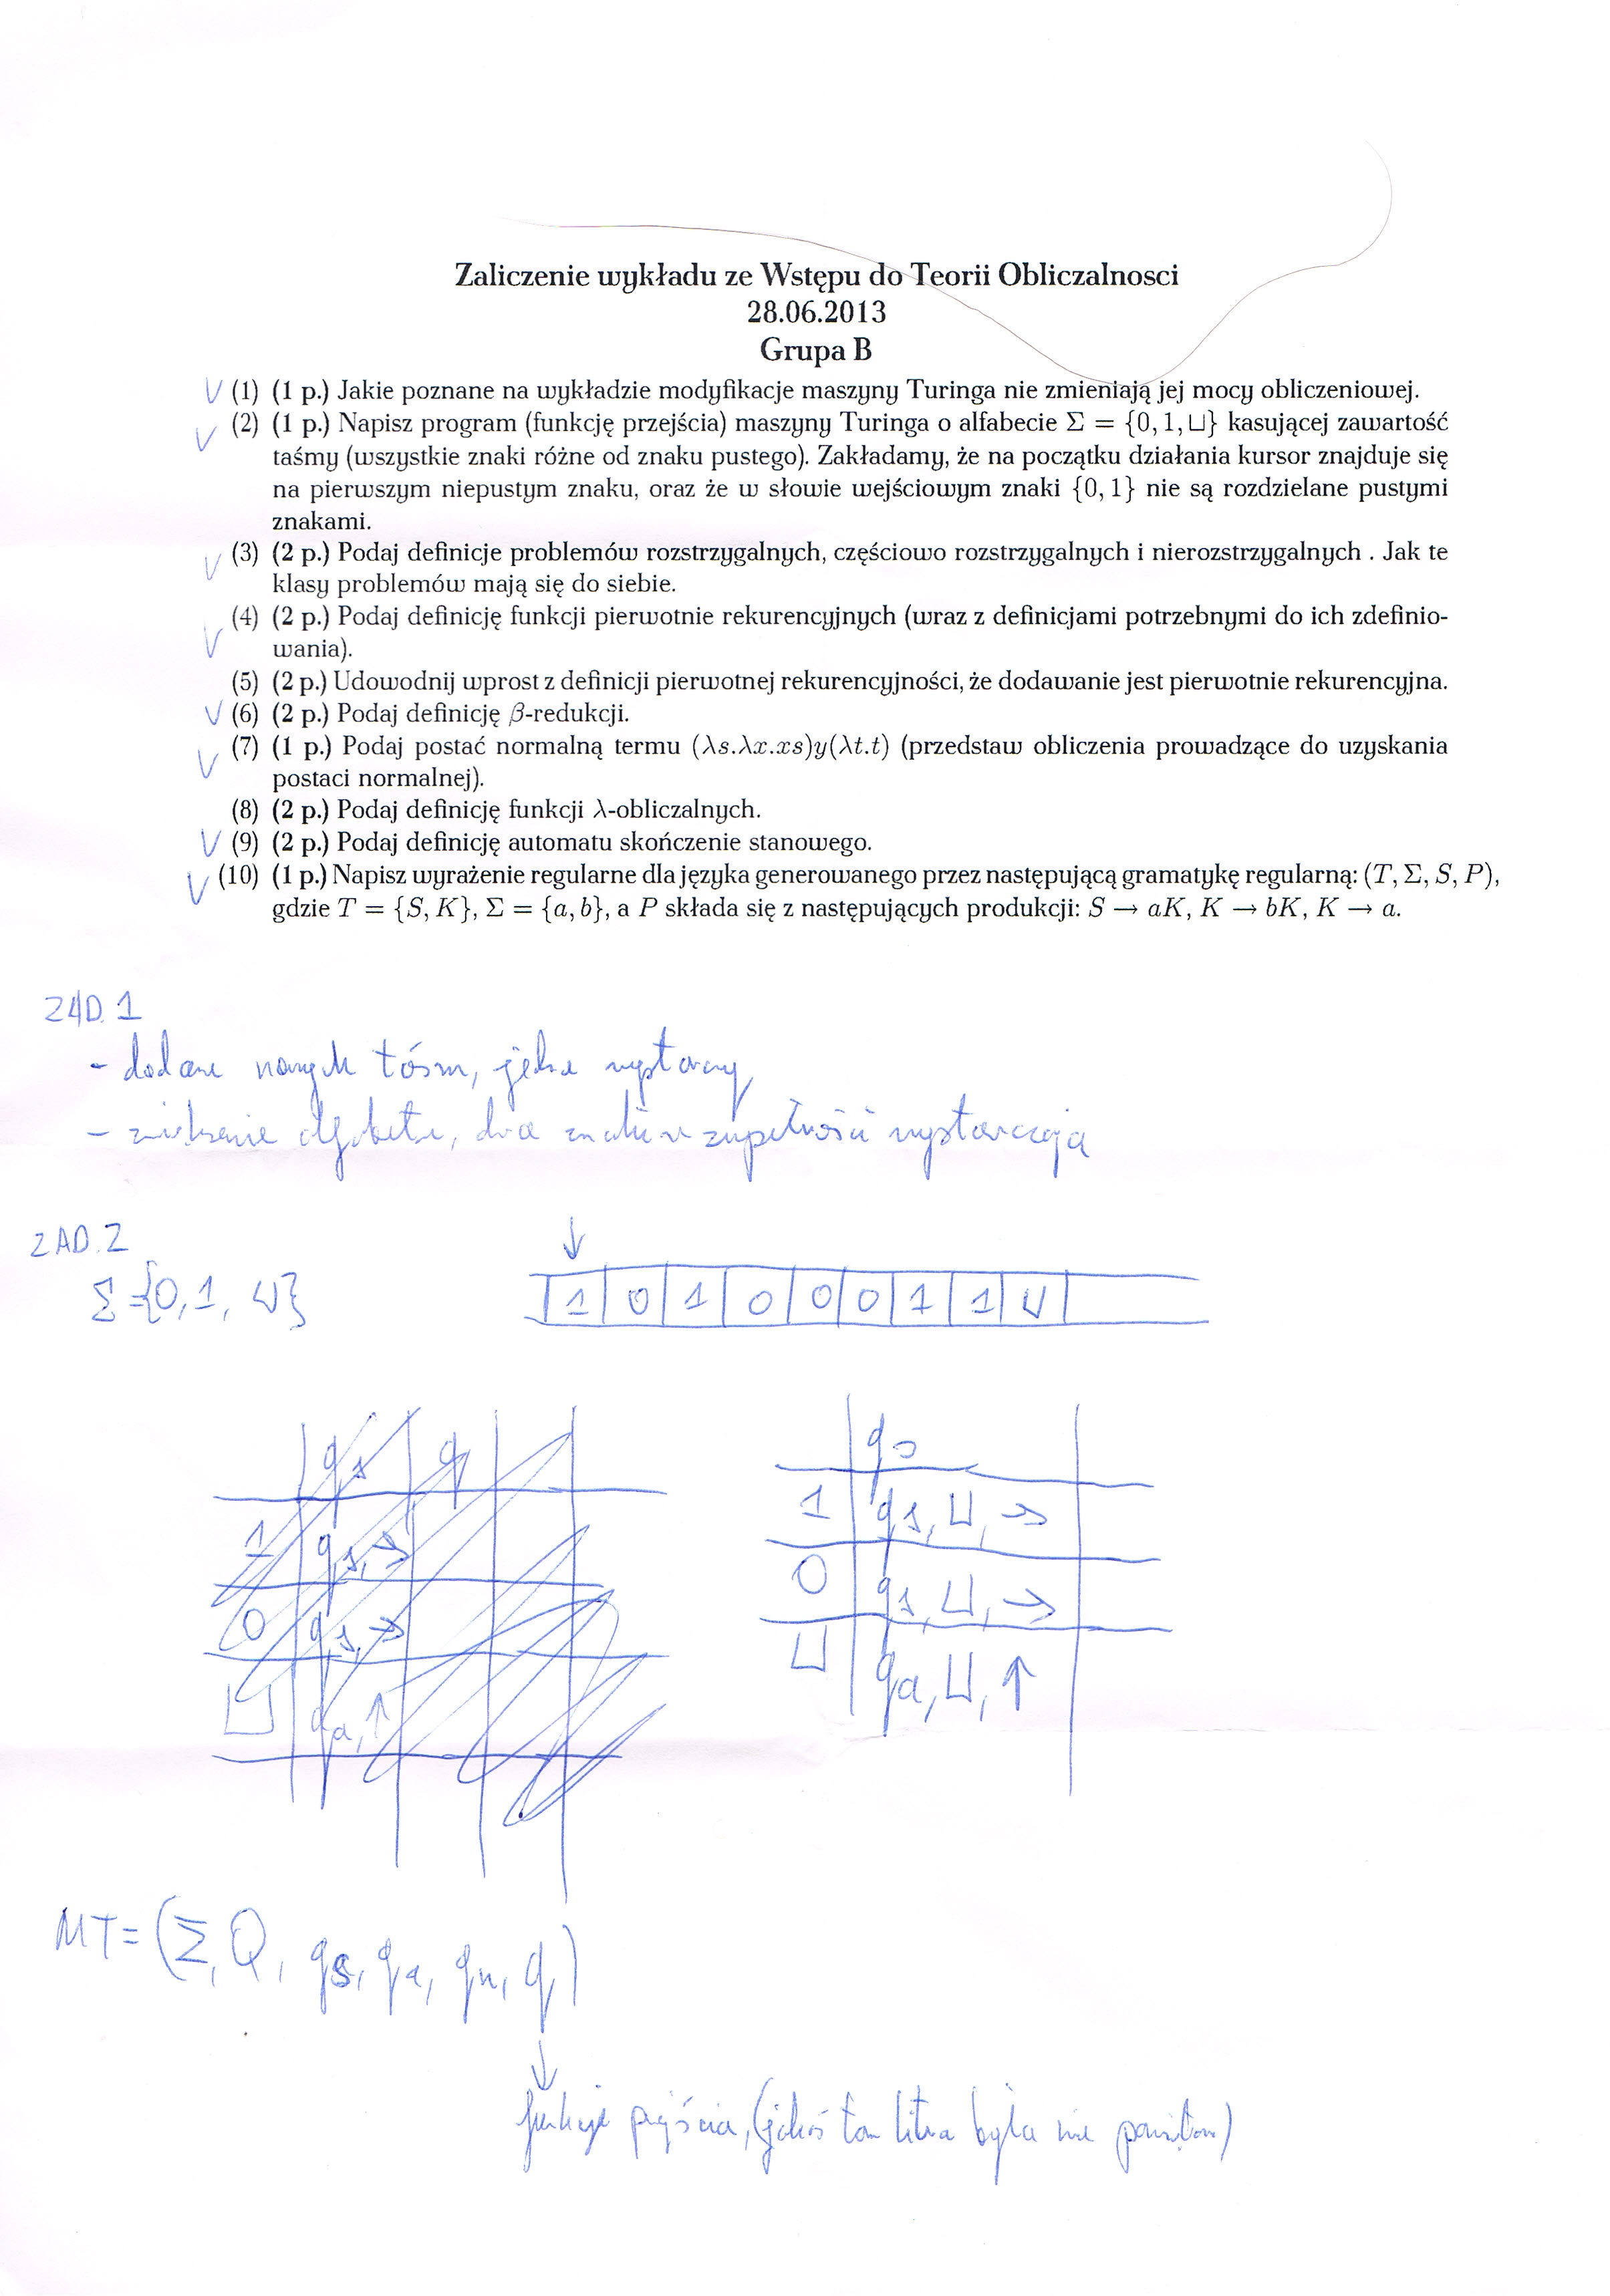 Zaliczenie wykładu ze Wstępu do Teorii Obliczalnosci
28.06.2013
Grupa B
V (1) (1 p.) Jakie poznane na wykładzie modyfikacje maszyny Turinga nie zmieniają jej mocy obliczeniowej.
V (2) (1 p.) Napisz program (funkcję przejścia) maszyny Turinga o alfabecie Σ = {0, 1, ⊔} kasującej zawartość
taśmy (wszystkie znaki różne od znaku pustego). Zakładamy, że na początku działania kursor znajduje się
na pierwszym niepustym znaku, oraz że w słowie wejściowym znaki {0, 1} nie są rozdzielane pustymi
znakami.
V (3) (2 p.) Podaj definicje problemów rozstrzygalnych, częściowo rozstrzygalnych i nierozstrzygalnych . Jak te
klasy problemów mają się do siebie.
V (4) (2 p.) Podaj definicję funkcji pierwotnie rekurencyjnych (wraz z definicjami potrzebnymi do ich zdefinio-
wania).
(5) (2 p.) Udowodnij wprost z definicji pierwotnej rekurencyjności, że dodawanie jest pierwotnie rekurencyjna.
V (6) (2 p.) Podaj definicję β-redukcji.
V (7) (1 p.) Podaj postać normalną termu (λs.λx.xs)y(λt.t) (przedstaw obliczenia prowadzące do uzyskania
postaci normalnej).
(8) (2 p.) Podaj definicję funkcji λ-obliczalnych.
V (9) (2 p.) Podaj definicję automatu skończenie stanowego.
V (10) (1 p.) Napisz wyrażenie regularne dla języka generowanego przez następującą gramatykę regularną: (T, Σ, S, P),
gdzie T = {S, K}, Σ = {a, b}, a P składa się z następujących produkcji: S → aK, K → bK, K → a.
ZAD. 1
- dodanie nowych taśm, jedna wystarczy
- zwiększenie alfabetu, dwa znaki w zupełności wystarczają
ZAD. 2
↓
Σ={0,1, ⊔}
1 0 1 0 0 0 1 1 ⊔
qs q
1 qs, →
0 qs, →
⊔ qa, ↑
qs
1 qs, ⊔, →
0 qs, ⊔, →
⊔ qa, ⊔, ↑
MT = (Σ, Q, qs, qa, qn, q)
↓
funkcja przejścia, (jakoś tam litera była nie pamiętam)